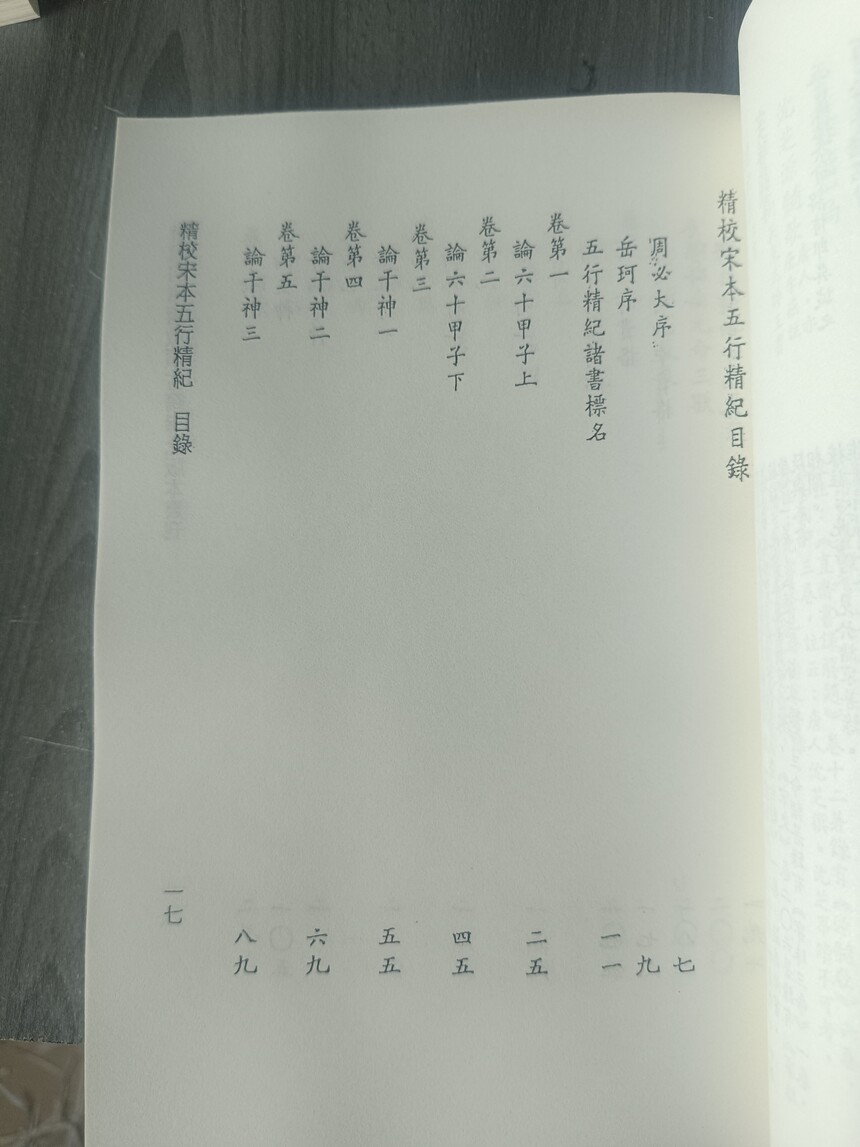 精校宋本五行精紀目錄
周必大序 七
岳珂序 九
五行精紀諸書標名 一一
卷第一
論六十甲子上 二五
卷第二
論六十甲子下 四五
卷第三
論干神一 五五
卷第四
論干神二 六九
卷第五
論干神三 八九
精校宋本五行精紀 目錄
一七